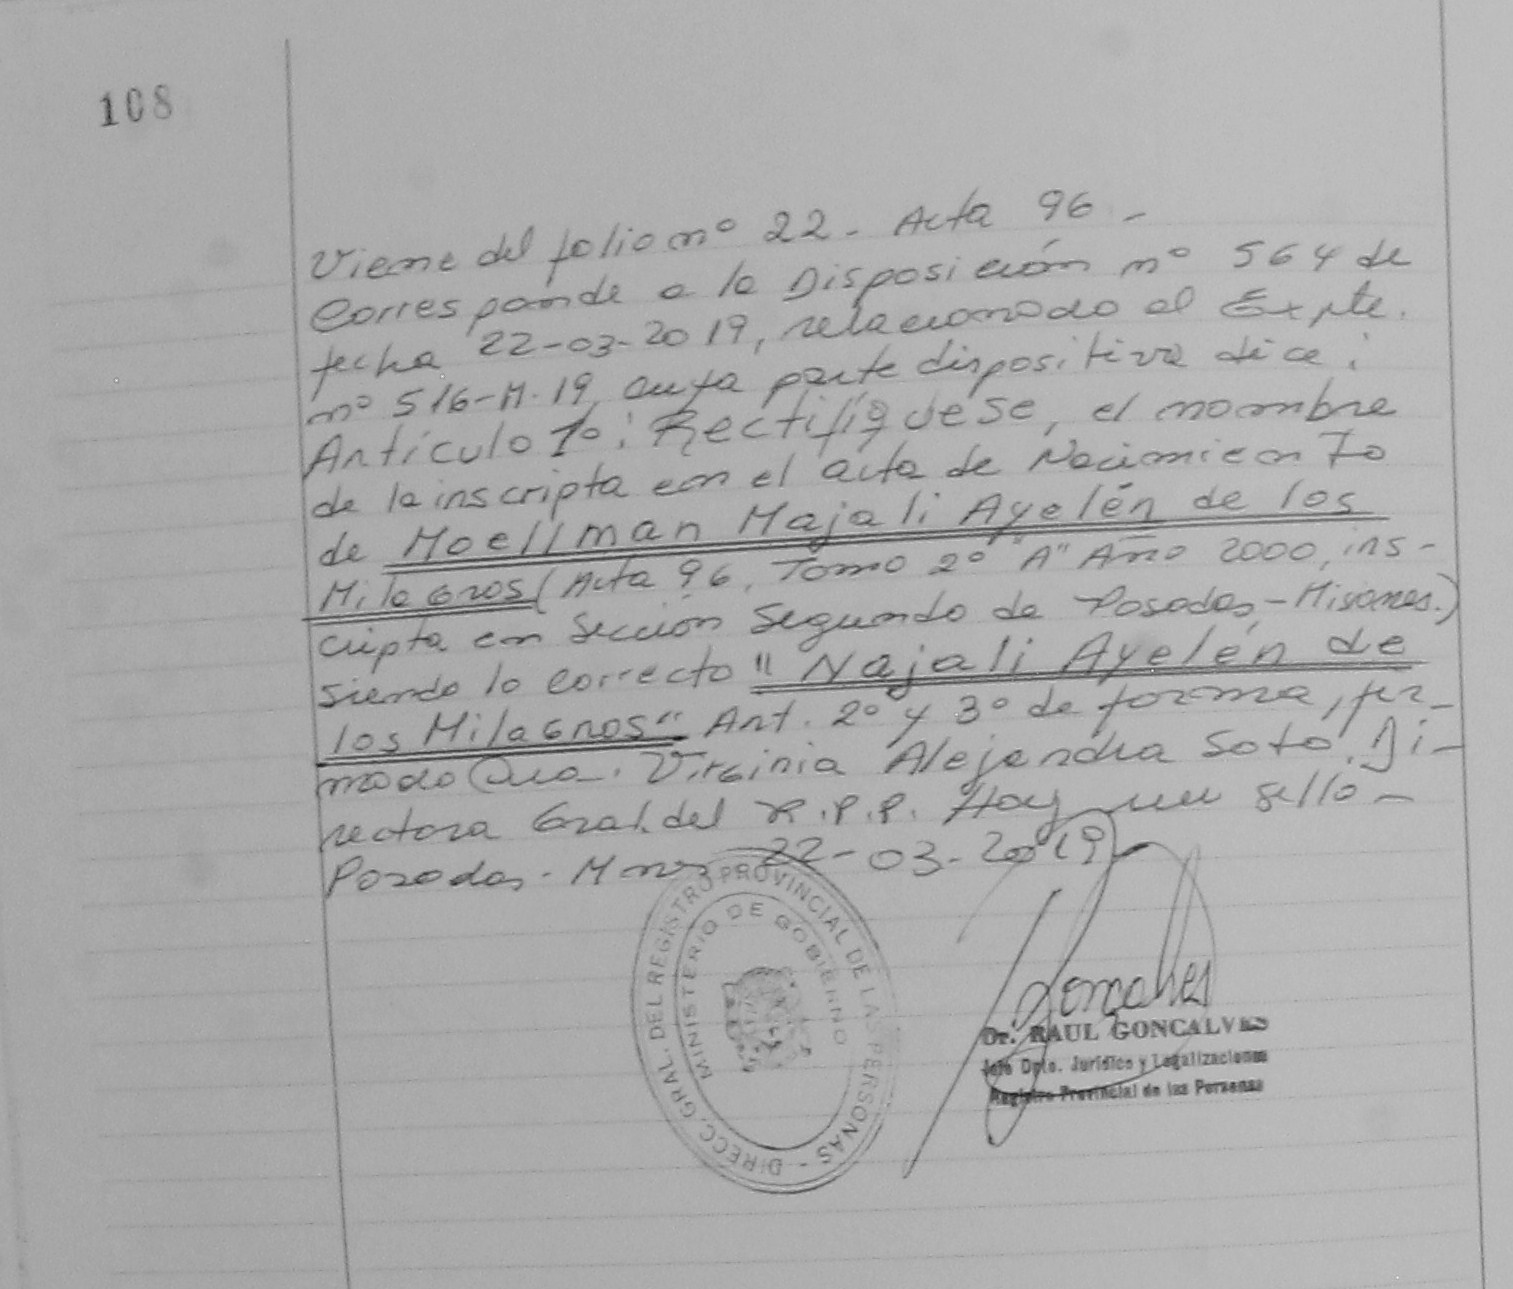 108
Viene del folio nº 22 - Acta 96 -
Corresponde a la Disposición nº 564 de
fecha 22-03-2019, relacionado al Expte.
nº 516-M-19, cuya parte dispositiva dice:
Artículo 1º: Rectifíquese, el nombre
de la inscripta en el acta de Nacimiento
de Moellman Majali Ayelén de los
Milagros (Acta 96, Tomo 2º "A" Año 2000, ins-
cripta en Sección Segunda de Posadas - Misiones.)
siendo lo correcto "Najali Ayelén de
los Milagros" Art. 2º y 3º de forma, fir-
mado Dra. Virginia Alejandra Soto. Di-
rectora Gral. del R.P.P. Hay un sello -
Posadas - Mnes 22-03-2019
DIRECC. GRAL. DEL REGISTRO PROVINCIAL DE LAS PERSONAS -
MINISTERIO DE GOBIERNO
Goncalves
Dr. RAUL GONCALVES
Jefe Dpto. Jurídico y Legalizaciones
Registro Provincial de las Personas